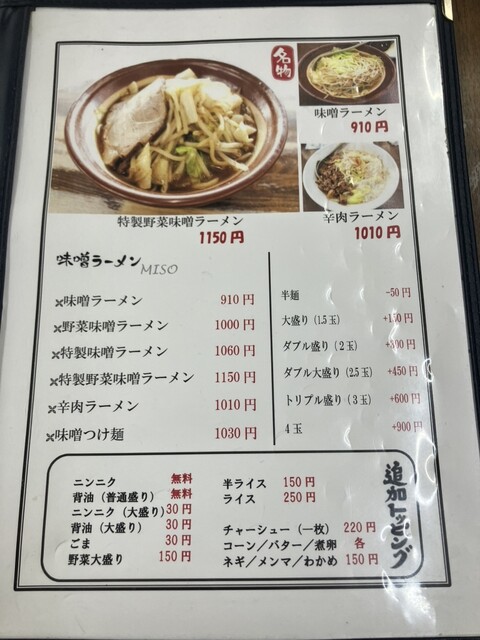 名物
味噌ラーメン
910円
特製野菜味噌ラーメン
1150円
辛肉ラーメン
1010円
味噌ラーメン MISO
味噌ラーメン 910円
野菜味噌ラーメン 1000円
特製味噌ラーメン 1060円
特製野菜味噌ラーメン 1150円
辛肉ラーメン 1010円
味噌つけ麺 1030円
半麺 -50円
大盛り(1.5玉) +150円
ダブル盛り(2玉) +300円
ダブル大盛り(2.5玉) +450円
トリプル盛り(3玉) +600円
4玉 +900円
追加トッピング
ニンニク 無料
背油(普通盛り) 無料
ニンニク(大盛り) 30円
背油(大盛り) 30円
ごま 30円
野菜大盛り 150円
半ライス 150円
ライス 250円
チャーシュー(一枚) 220円
コーン/バター/煮卵 各
ネギ/メンマ/わかめ 150円